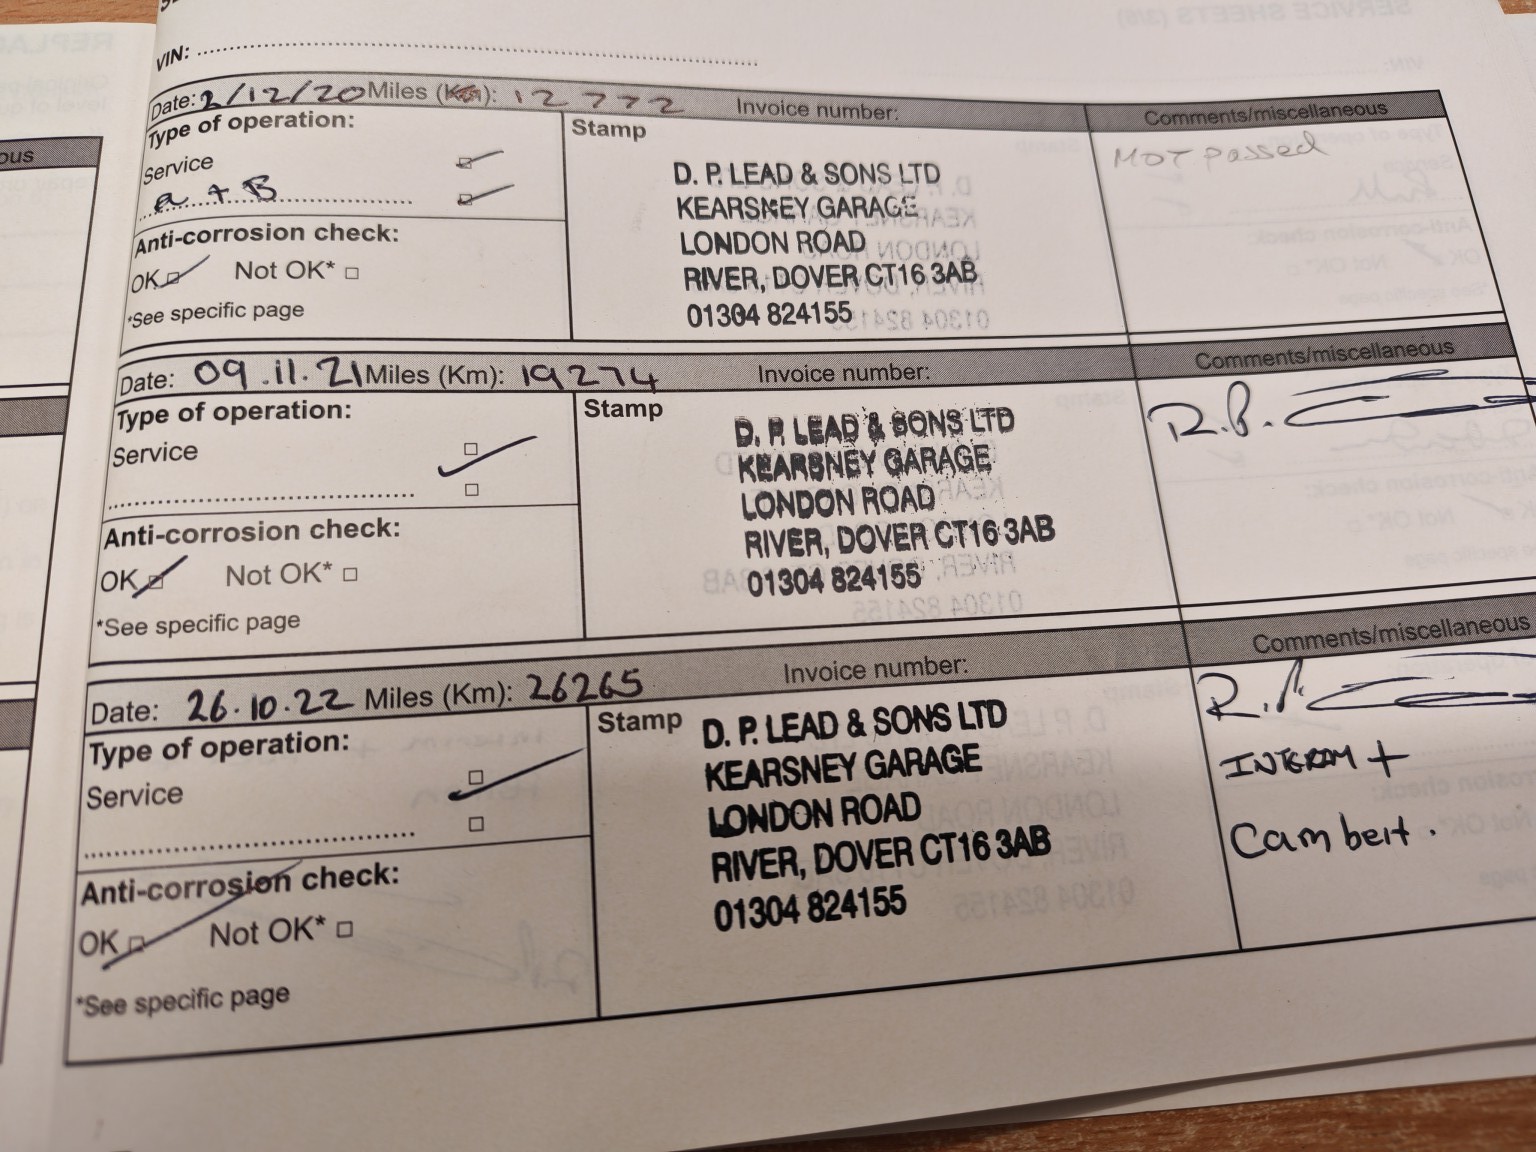 VIN:
Date: 2/12/20 Miles (Km): 12772 Invoice number:
Comments/miscellaneous
Type of operation:
Service
a + B
Anti-corrosion check:
OK Not OK*
*See specific page
Stamp
D. P. LEAD & SONS LTD
KEARSNEY GARAGE
LONDON ROAD
RIVER, DOVER CT16 3AB
01304 824155
MOT passed
Date: 09.11.21 Miles (Km): 19274 Invoice number:
Comments/miscellaneous
Type of operation:
Service
Anti-corrosion check:
OK Not OK*
*See specific page
Stamp
D. P. LEAD & SONS LTD
KEARSNEY GARAGE
LONDON ROAD
RIVER, DOVER CT16 3AB
01304 824155
Date: 26.10.22 Miles (Km): 26265 Invoice number:
Comments/miscellaneous
Type of operation:
Service
Anti-corrosion check:
OK Not OK*
*See specific page
Stamp
D. P. LEAD & SONS LTD
KEARSNEY GARAGE
LONDON ROAD
RIVER, DOVER CT16 3AB
01304 824155
INTERIM +
Cam belt.